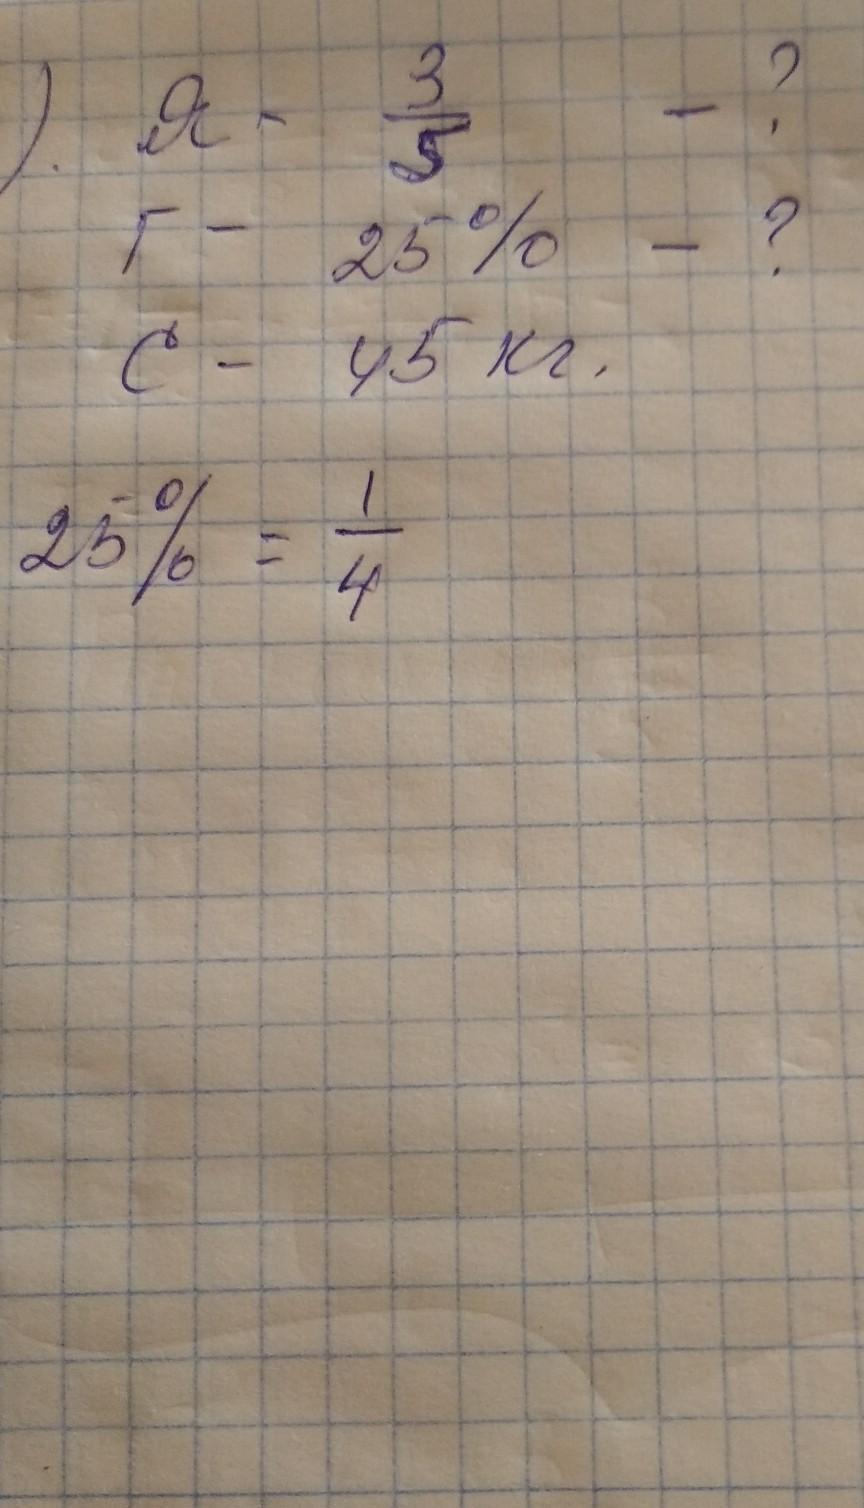 ). Я - 3/5 - ?
Г - 25% - ?
С - 45 кг.
25% = 1/4